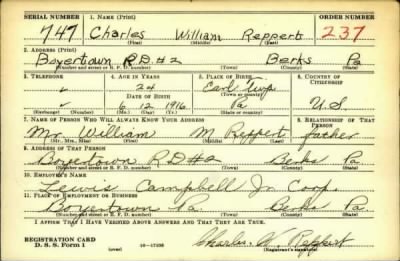 SERIAL NUMBER 1. NAME (Print) ORDER NUMBER
747 Charles William Reppert 237
(First) (Middle) (Last)
2. ADDRESS (Print)
Boyertown R.D.#2 Berks Pa
(Number and street or R. F. D. number) (Town) (County) (State)
3. TELEPHONE 4. AGE IN YEARS 5. PLACE OF BIRTH 6. COUNTRY OF CITIZENSHIP
24 Earl Twp
DATE OF BIRTH (Town or county)
6 12 1916 Pa U.S.
(Exchange) (Number) (Mo.) (Day) (Yr.) (State or country)
7. NAME OF PERSON WHO WILL ALWAYS KNOW YOUR ADDRESS 8. RELATIONSHIP OF THAT PERSON
Mr. William M Reppert father
(Mr., Mrs., Miss) (First) (Middle) (Last)
9. ADDRESS OF THAT PERSON
Boyertown R.D#2 Berks Pa.
(Number and street or R. F. D. number) (Town) (County) (State)
10. EMPLOYER'S NAME
Lewis Campbell Jn Coop.
11. PLACE OF EMPLOYMENT OR BUSINESS
Boyertown Pa. Berks Pa.
(Number and street or R. F. D. number) (Town) (County) (State)
I AFFIRM THAT I HAVE VERIFIED ABOVE ANSWERS AND THAT THEY ARE TRUE.
REGISTRATION CARD
D. S. S. Form 1 (over) 16—17105 Charles W. Reppert
(Registrant's signature)